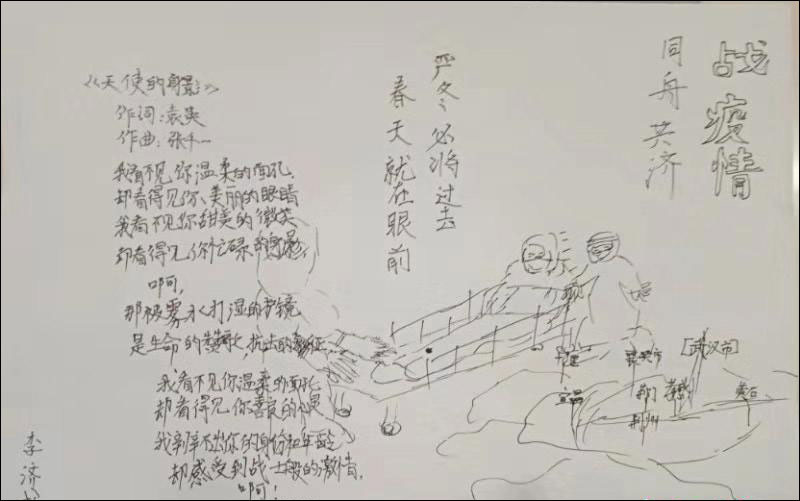 战疫情
同舟共济
严冬必将过去
春天就在眼前
《天使的身影》
作词:袁英
作曲:张千一
我看不见你温柔的面孔,
却看得见你美丽的眼睛
我看不见你甜美的微笑
却看得见你忙碌的身影,
啊,
那被雾水打湿的护镜
是生命的
我看不见你温柔的面孔
却看得见你善良的
我辨不出你的身份和年龄
却感受到战士般的激情,
啊!
[武汉市]
宜昌
荆门 孝感 黄石
荆州
李济